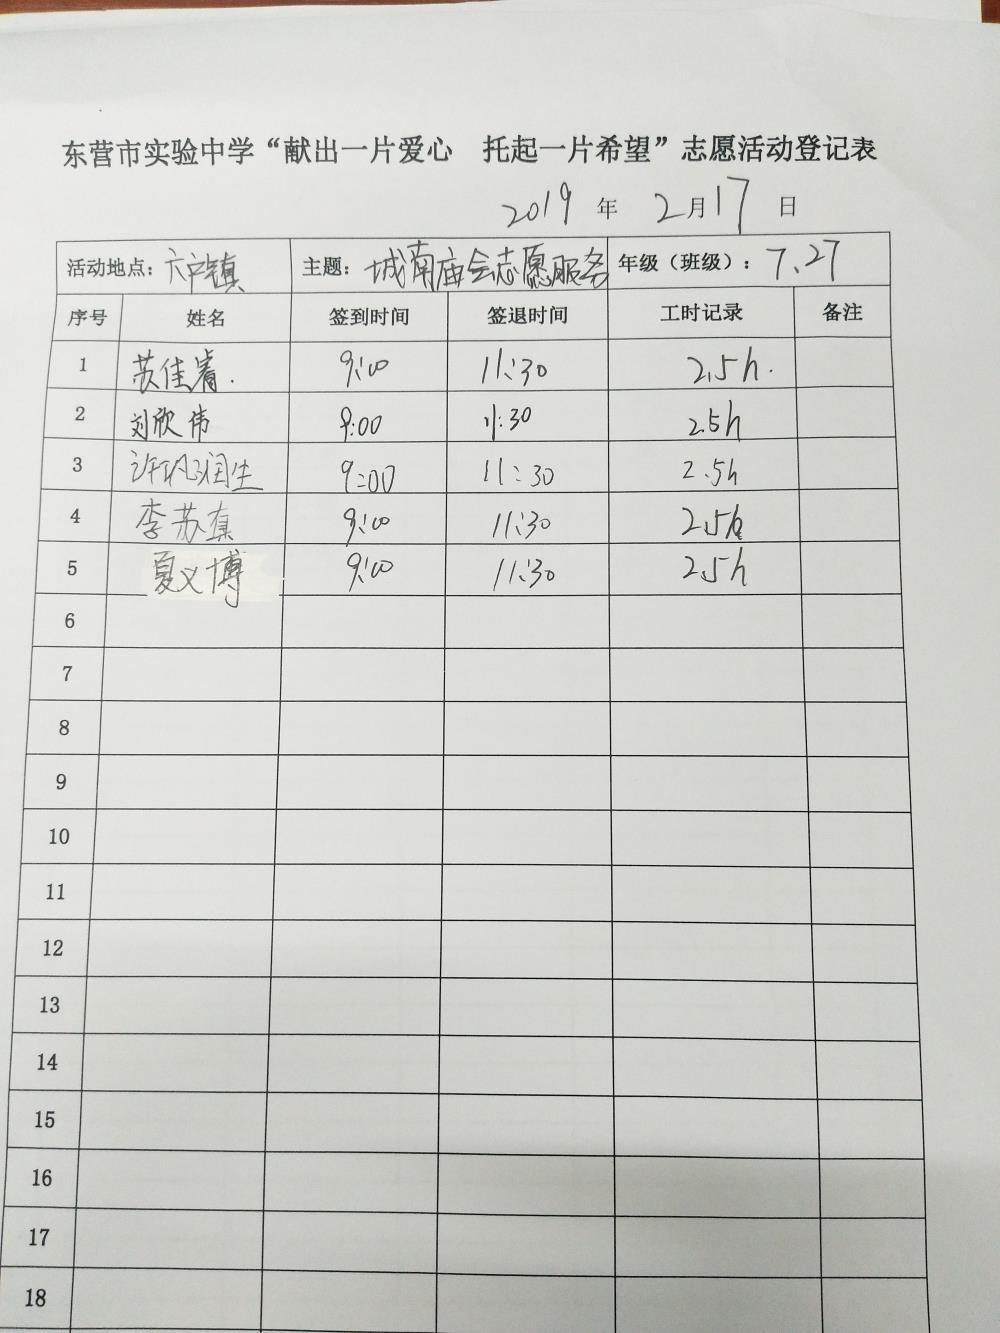 东营市实验中学“献出一片爱心 托起一片希望”志愿活动登记表
2019 年 2月17 日
活动地点：六户镇 主题：城南庙会志愿服务 年级（班级）：7.27
序号 姓名 签到时间 签退时间 工时记录 备注
1 苏佳睿. 9:00 11:30 2.5h.
2 刘欣伟 9:00 11:30 2.5h
3 许 润生 9:00 11:30 2.5h
4 李苏真 9:00 11:30 2.5h
5 夏义博 9:00 11:30 2.5h
6
7
8
9
10
11
12
13
14
15
16
17
18